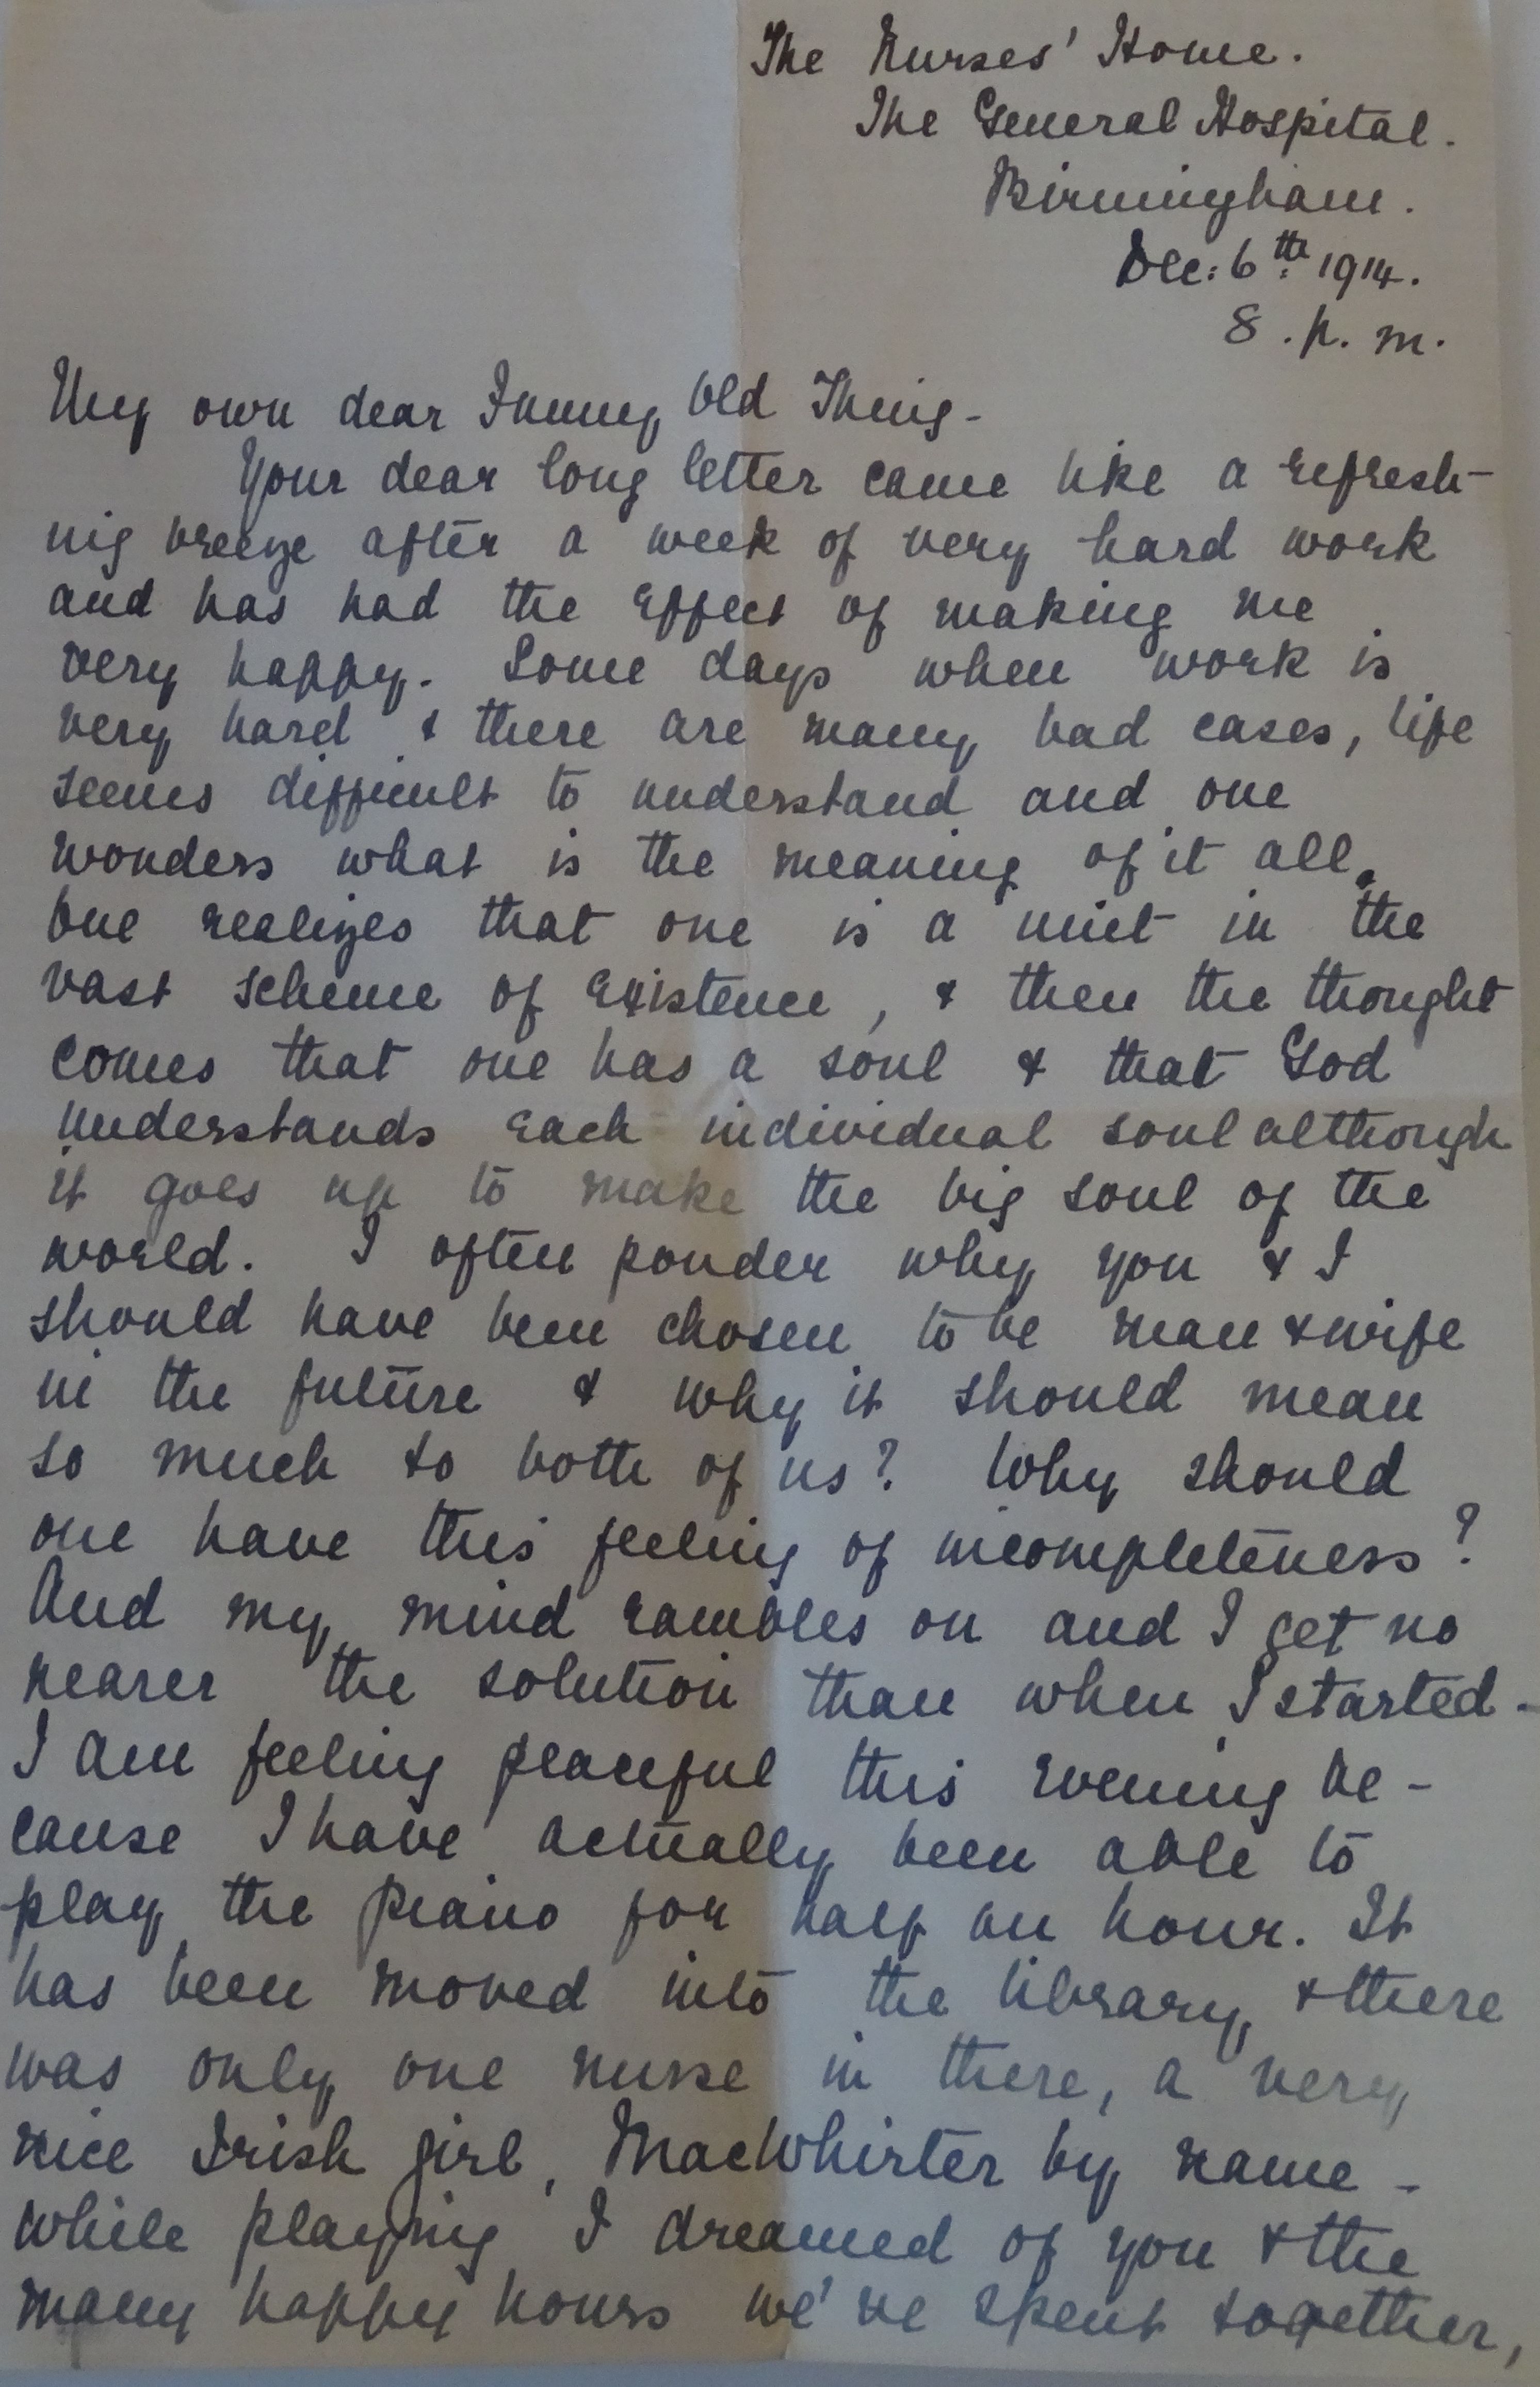 The Nurses' Home.
The General Hospital.
Birmingham.
Dec: 6th 1914.
8. p. m.
My own dear Funny Old Thing -
Your dear long letter came like a refresh-
ing breeze after a week of very hard work
and has had the effect of making me
very happy. Some days when work is
very hard & there are many bad cases, life
seems difficult to understand and one
wonders what is the meaning of it all.
One realizes that one is a unit in the
vast scheme of existence, & then the thought
comes that one has a soul & that God
understands each individual soul although
it goes up to make the big soul of the
world. I often ponder why you & I
should have been chosen to be man & wife
in the future & why it should mean
so much to both of us? Why should
one have this feeling of incompleteness?
And my mind rambles on and I get no
nearer the solution than when I started -
I am feeling peaceful this evening be-
cause I have actually been able to
play the piano for half an hour. It
has been moved into the library, & there
was only one nurse in there, a very
nice Irish girl, MacWhirter by name -
While playing I dreamed of you & the
many happy hours we've spent together,